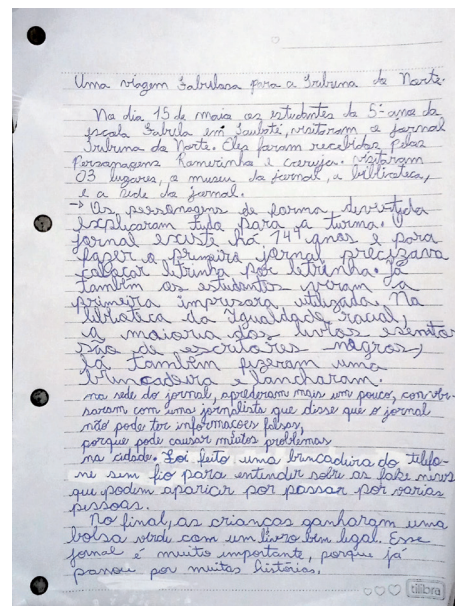 Uma viagem Fabulosa para a Tribuna do Norte.
No dia 15 de maio os estudantes do 5º ano da
escola Fabula em Taubaté, visitaram o jornal
Tribuna do Norte. Eles foram recebidos pelos
Personagens Ramerinha e coruja. visitaram
03 lugares, o museu do jornal, a biblioteca,
e a sede do jornal.
→ Os personagens de forma divertida
explicaram tudo para a turma. O
jornal existe há 144 anos e para
fazer o primeiro jornal precisava
colocar letrinha por letrinha. Já
também os estudantes viram a
primeira impressora utilizada. Na
biblioteca da Igualdade racial,
a maioria dos livros escritos
são de escritores negros,
lá também fizeram uma
brincadeira e lancharam.
na sede do jornal, aprederam mais um pouco, conver-
saram com uma jornalista que disse que o jornal
não pode ter informacoes falsas,
porque pode causar muitos problemas
na cidade. Foi feito uma brincadeira do telefo-
ne sem fio para entender sobre as fake news
que podem aparicir por passar por varias
pessoas.
No final, as crianças ganharam uma
bolsa verde com um livro bem legal. Esse
jornal é muito importante, porque já
passou por muitas histórias.
tilibra